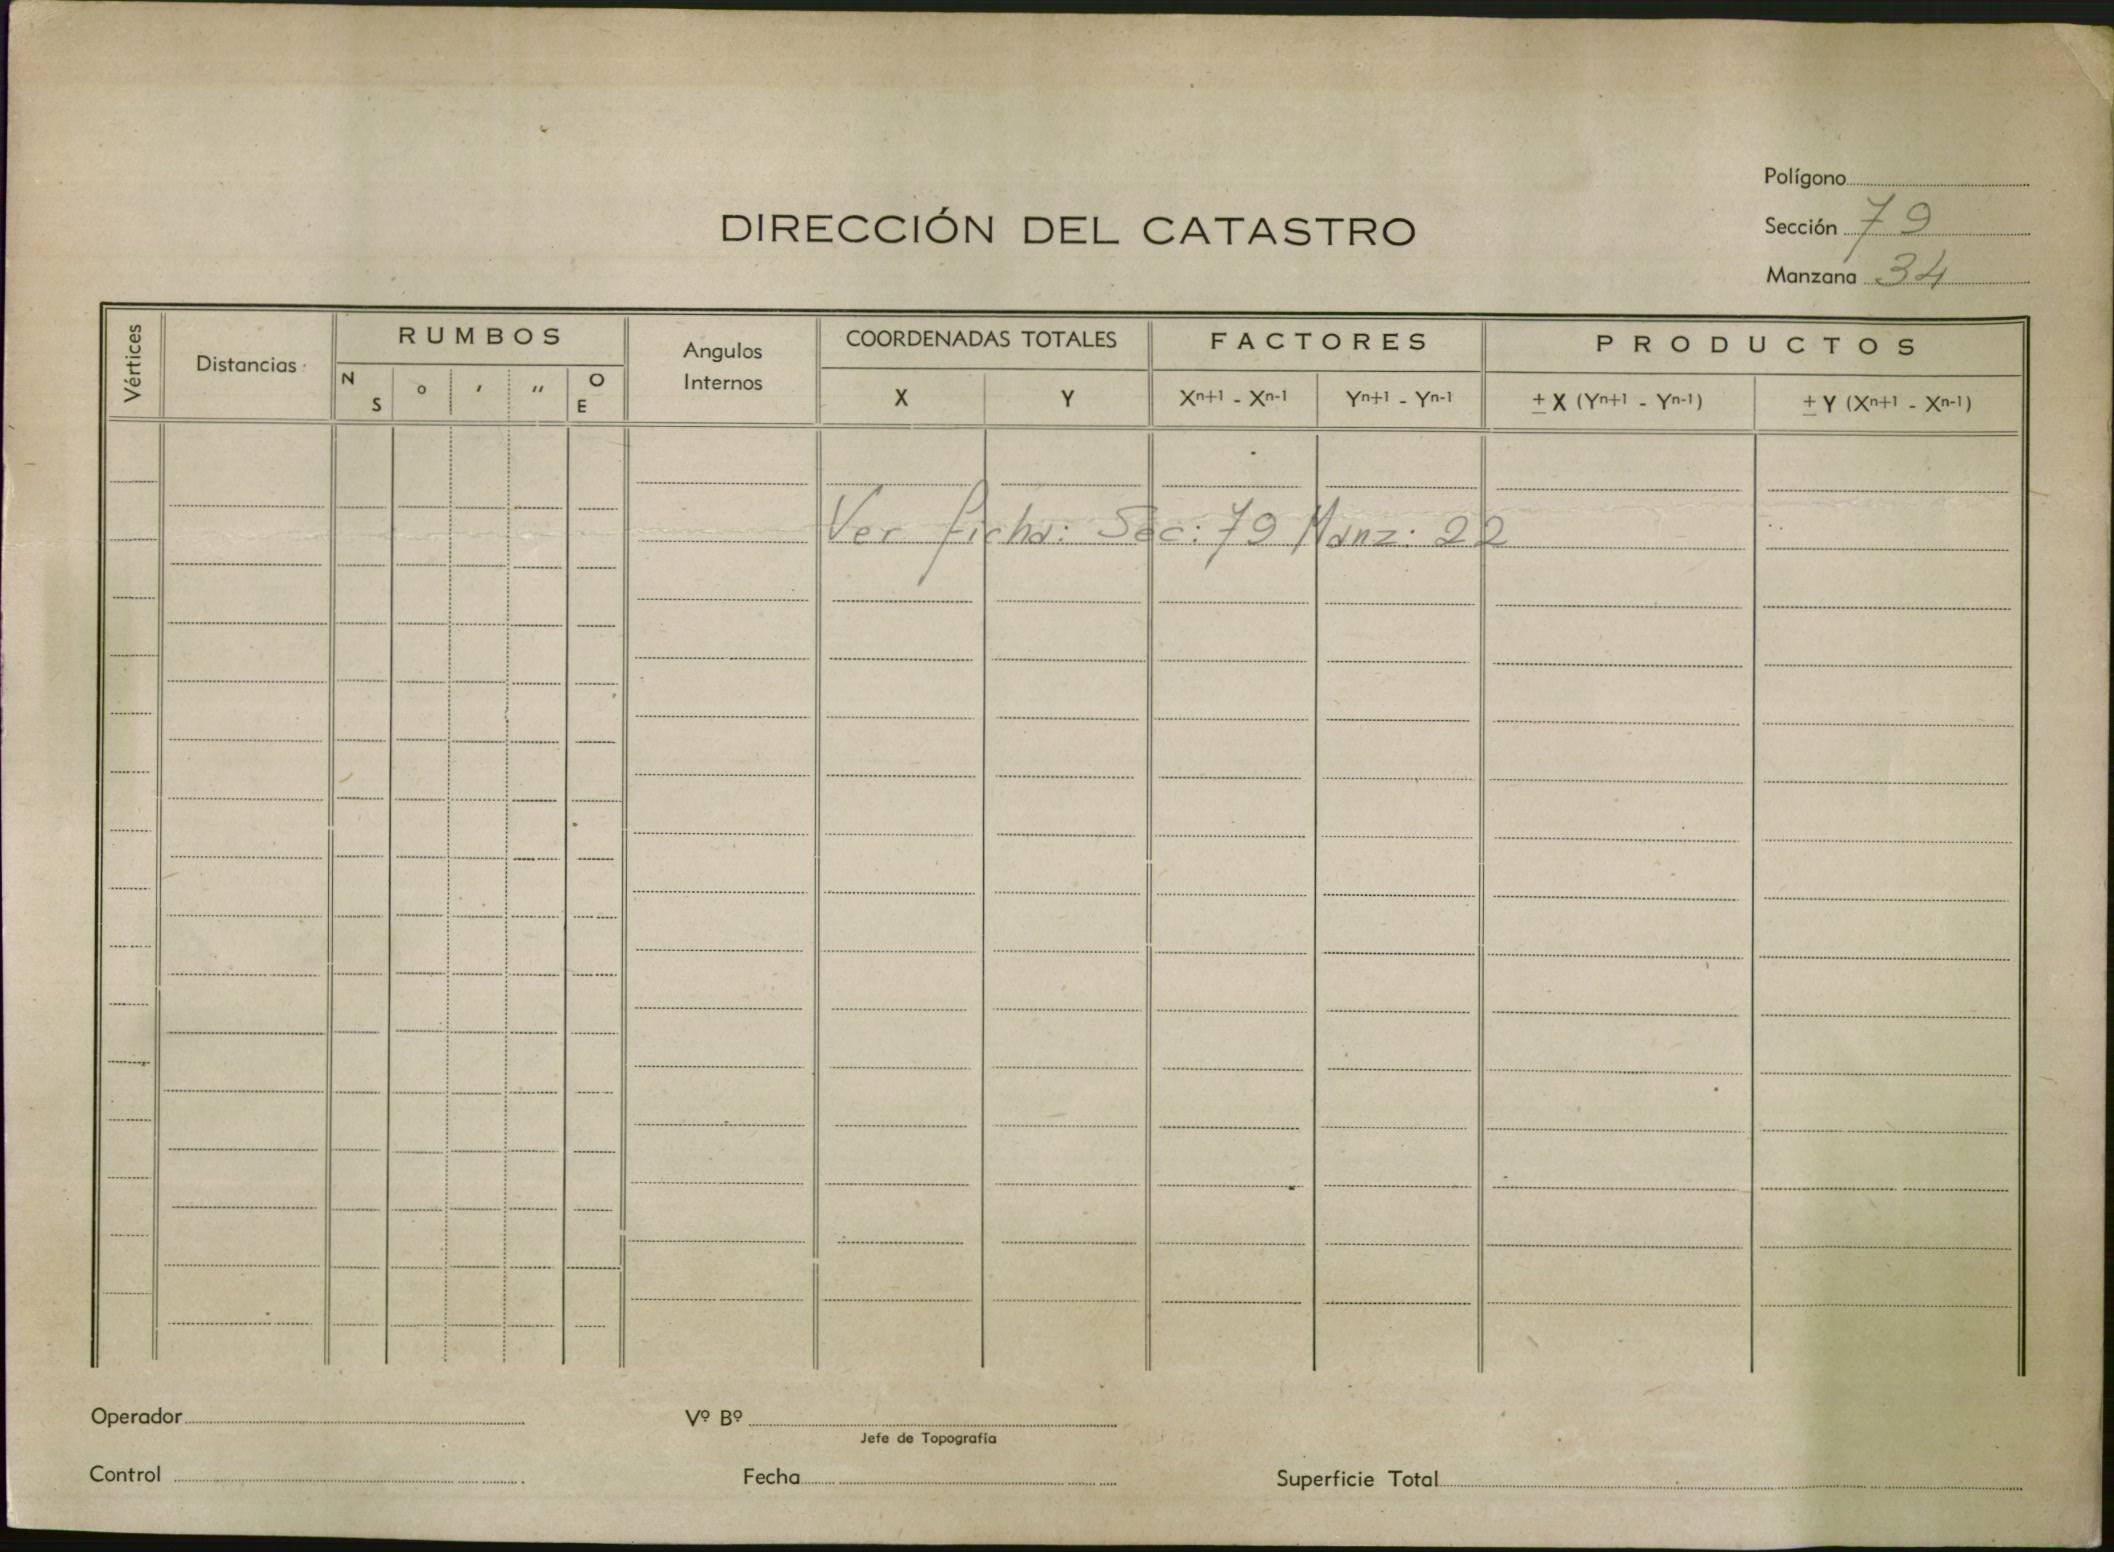 Polígono
DIRECCIÓN DEL CATASTRO
Sección 79
Manzana 34
Vértices
Distancias
RUMBOS
N S
o
′
″
O E
Angulos
Internos
COORDENADAS TOTALES
X
Y
FACTORES
Xn+1 - Xn-1
Yn+1 - Yn-1
PRODUCTOS
± X (Yn+1 - Yn-1)
± Y (Xn+1 - Xn-1)
Ver ficha: Sec: 79 Manz: 22
Operador
Vº Bº
Jefe de Topografía
Control
Fecha
Superficie Total